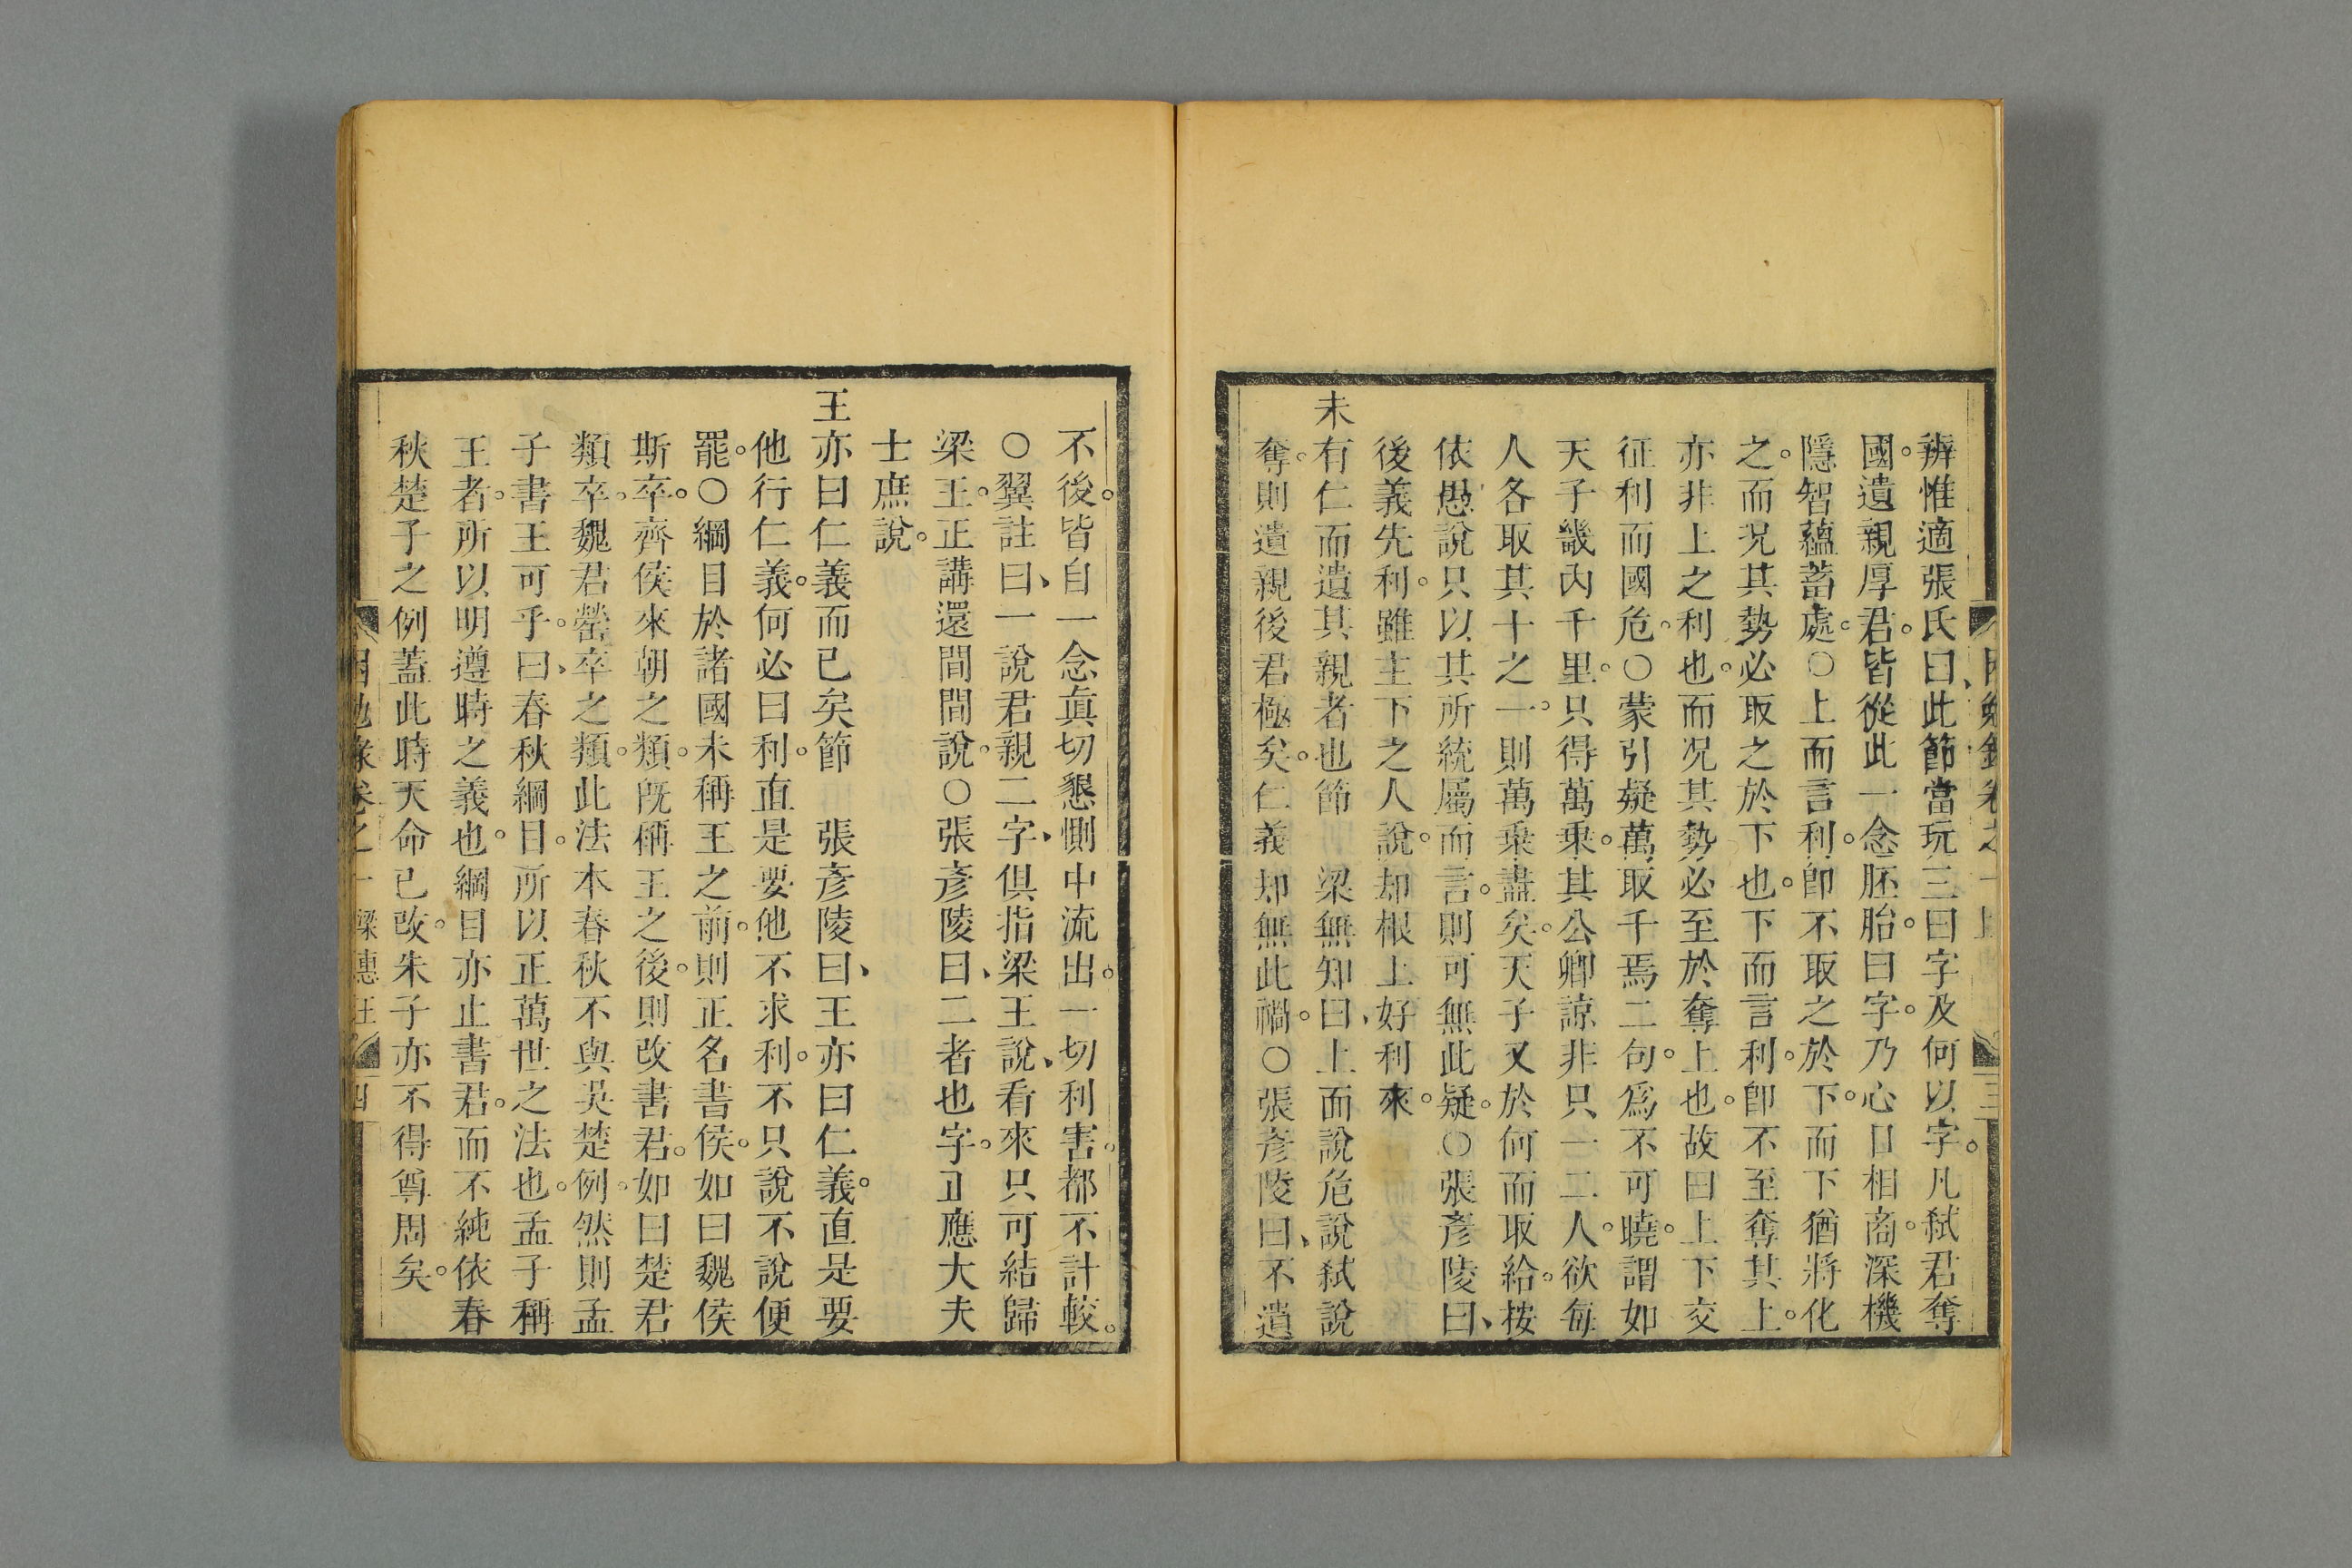 辨惟適張氏曰、此節當玩三曰字及何以字。凡弒君奪
國。遺親厚君。皆從此一念胚胎。曰字。乃心口相商。深機
隱智蘊蓄處。○上而言利。卽不取之於下。而下猶將化
之。而况其勢必取之於下也。下而言利。卽不至奪其上。
亦非上之利也。而况其勢必至於奪上也。故曰上下交
征利而國危。○蒙引疑萬取千焉二句。爲不可曉。謂如
天子畿内千里。只得萬乗。其公卿諒非只一二人。欲每
人各取其十之一。則萬乗盡矣。天子又於何而取給。按
依愚說只以其所統屬而言。則可無此疑。○張彥陵曰、
後義先利。雖主下之人說。却根上好利來。
未有仁而遺其親者也節　梁無知曰、上面說危說弒說
奪。則遺親後君極矣。仁義却無此禍。○張彥陵曰、不遺
不後。皆自一念眞切懇惻中流出。一切利害。都不計較。
○翼註曰、一說君親二字、俱指梁王說、看來只可結歸
梁王。正講還間間說。○張彥陵曰、二者也字。正應大夫
士庶說。
王亦曰仁義而已矣節　張彥陵曰、王亦曰仁義。直是要
他行仁義。何必曰利。直是要他不求利。不只說不說便
罷。○綱目於諸國未稱王之前。則正名書侯。如曰魏侯
斯卒。齊侯來朝之類。旣稱王之後。則改書君。如曰楚君
類卒。魏君罃卒之類。此法本春秋不與吳楚例。然則孟
子書王可乎。曰、春秋綱目。所以正萬世之法也。孟子稱
王者。所以明遵時之義也。綱目亦止書君。而不純依春
秋楚子之例。蓋此時天命已改。朱子亦不得尊周矣。